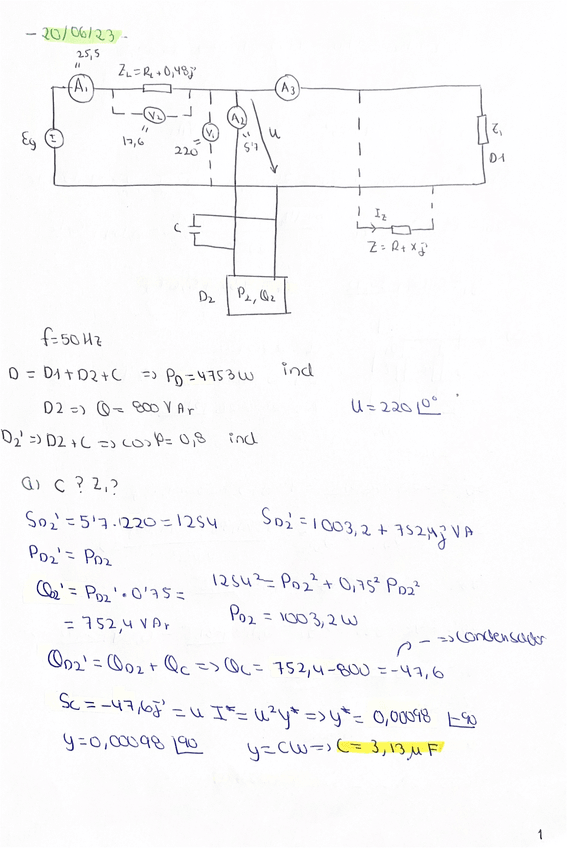 - 20/06/23 -
25,5
"
A1
ZL = RL + 0,48j
A3
V2
"
17,6
Eg
V1
"
220
A2
"
5'7
u
Z1
D1
C
I2
Z = R + Xj
D2
P2, Q2
f = 50 Hz
D = D1 + D2 + C => PD = 4753 W ind
D2 => Q = 800 VAr
U = 220 |0°
D2' => D2 + C => cos φ = 0,8 ind
a) C ? Z1 ?
SD2' = 5'7 · 220 = 1254
SD2' = 1003,2 + 752,4j VA
PD2' = PD2
QD2' = PD2' · 0'75 =
= 752,4 VAr
1254² = PD2² + 0,75² PD2²
PD2 = 1003,2 W
- => condensador
QD2' = QD2 + QC => QC = 752,4 - 800 = -47,6
SC = -47,6j = U I* = U² Y* => Y* = 0,00098 |-90
Y = 0,00098 |90
Y = Cω => C = 3,13 μF
1